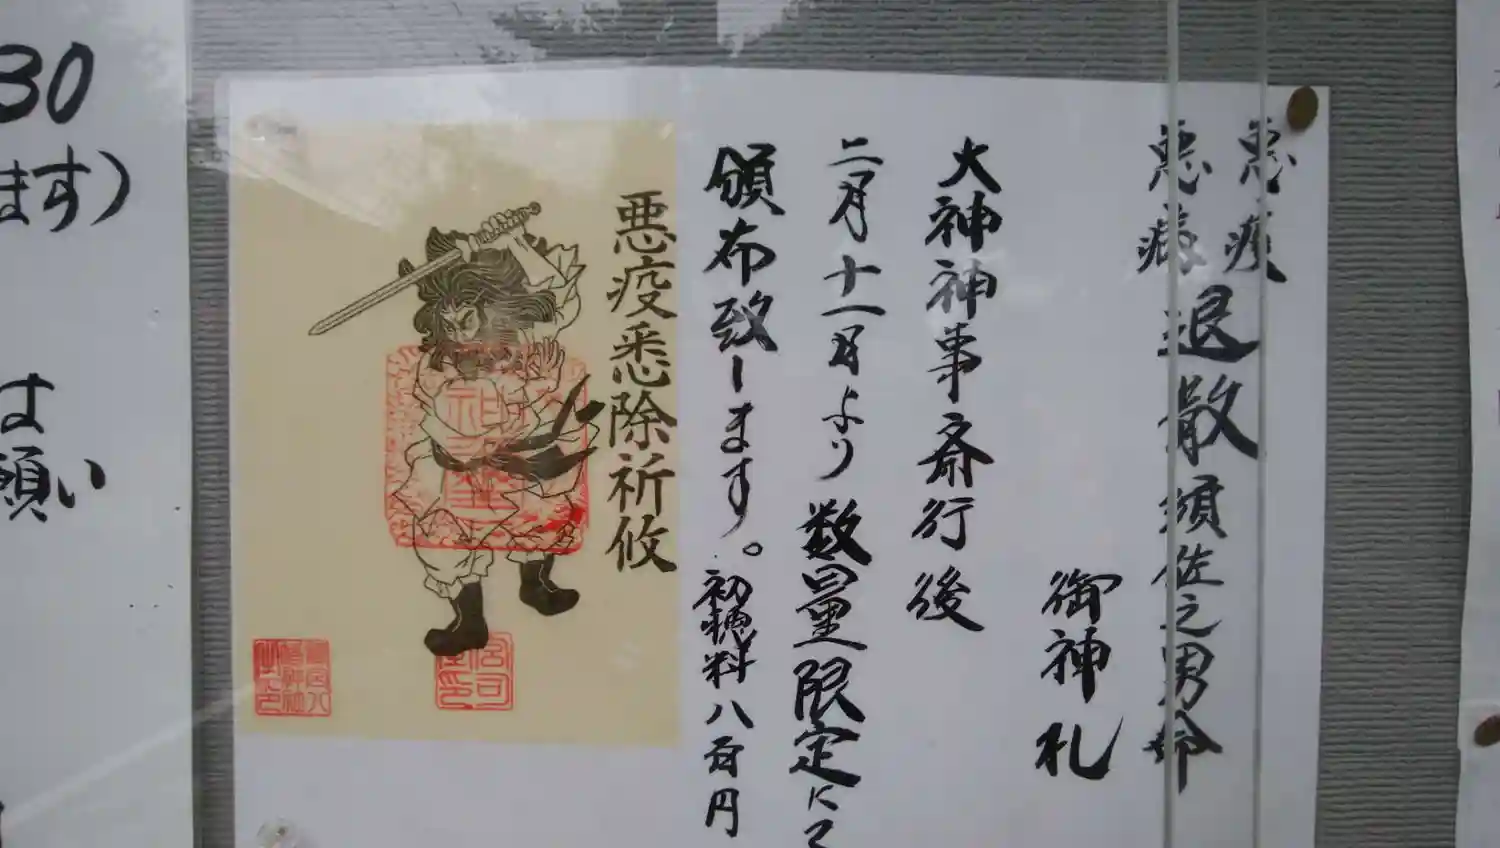 悪疫
悪病
退散 須佐之男命
御神札
大神神事斎行後
二月十一日より 数量限定にて
頒布致します。初穂料八百円
悪疫悉除祈攸
30
ます)
は
願い